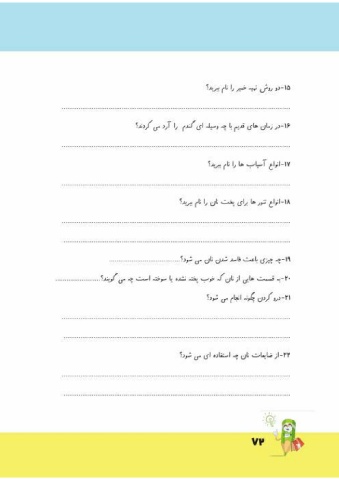 ۱۵-دو روش تهیه خمیر را نام ببرید؟
۱۶-در زمان های قدیم با چه وسیله ای گندم را آرد می کردند؟
۱۷-انواع آسیاب ها را نام ببرید؟
۱۸-انواع تنور ها برای پخت نان را نام ببرید؟
۱۹-چه چیزی باعث فاسد شدن نان می شود؟
۲۰-به قسمت هایی از نان که خوب پخته نشده یا سوخته است چه می گویند؟
۲۱-درو کردن چگونه انجام می شود؟
۲۲-از ضایعات نان چه استفاده ای می شود؟
۷۲